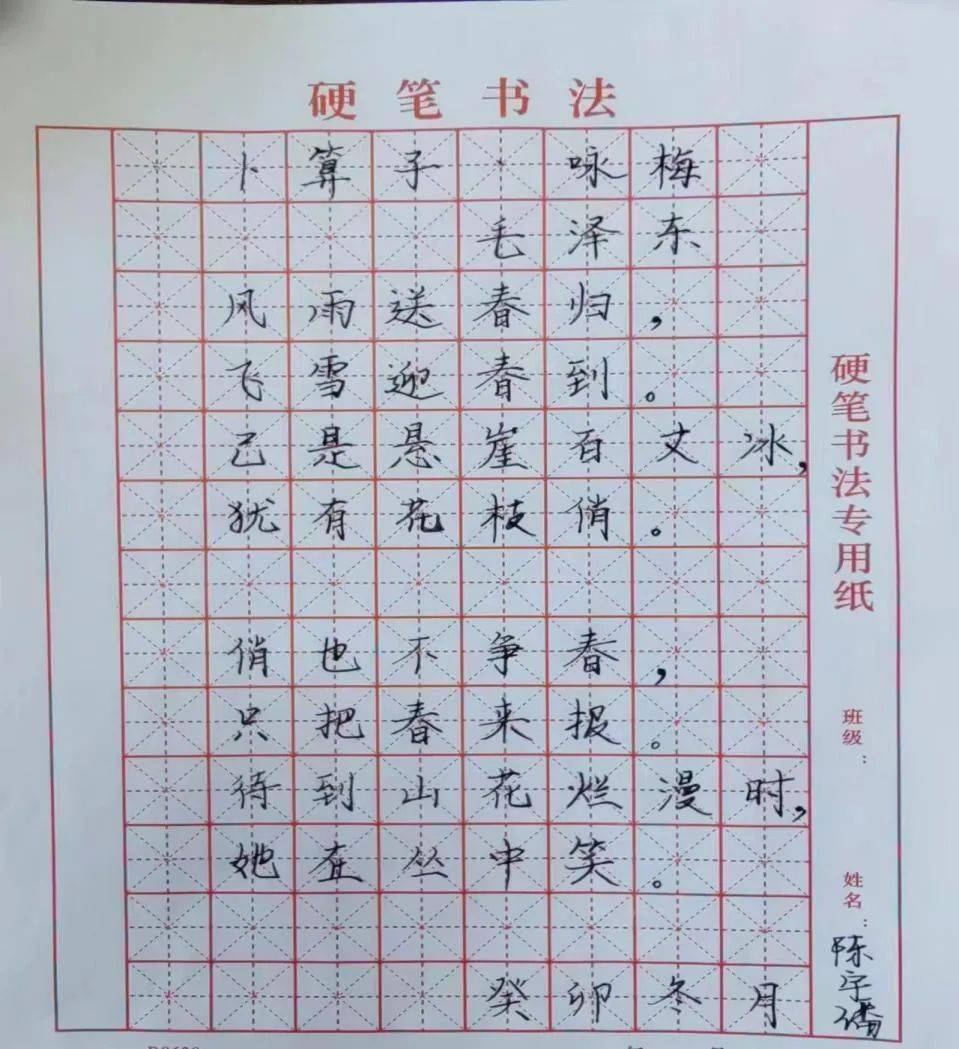 硬笔书法
卜算子·咏梅
毛泽东
风雨送春归，
飞雪迎春到。
已是悬崖百丈冰，
犹有花枝俏。
俏也不争春，
只把春来报。
待到山花烂漫时，
她在丛中笑。
癸卯冬月
硬笔书法专用纸
班级：
姓名：陈宇